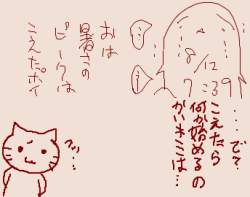 おは
暑さの
ピークは
こえたポイ
8/12
7:39
・・・で?
こえたら
何か始めるの
かいキミは…